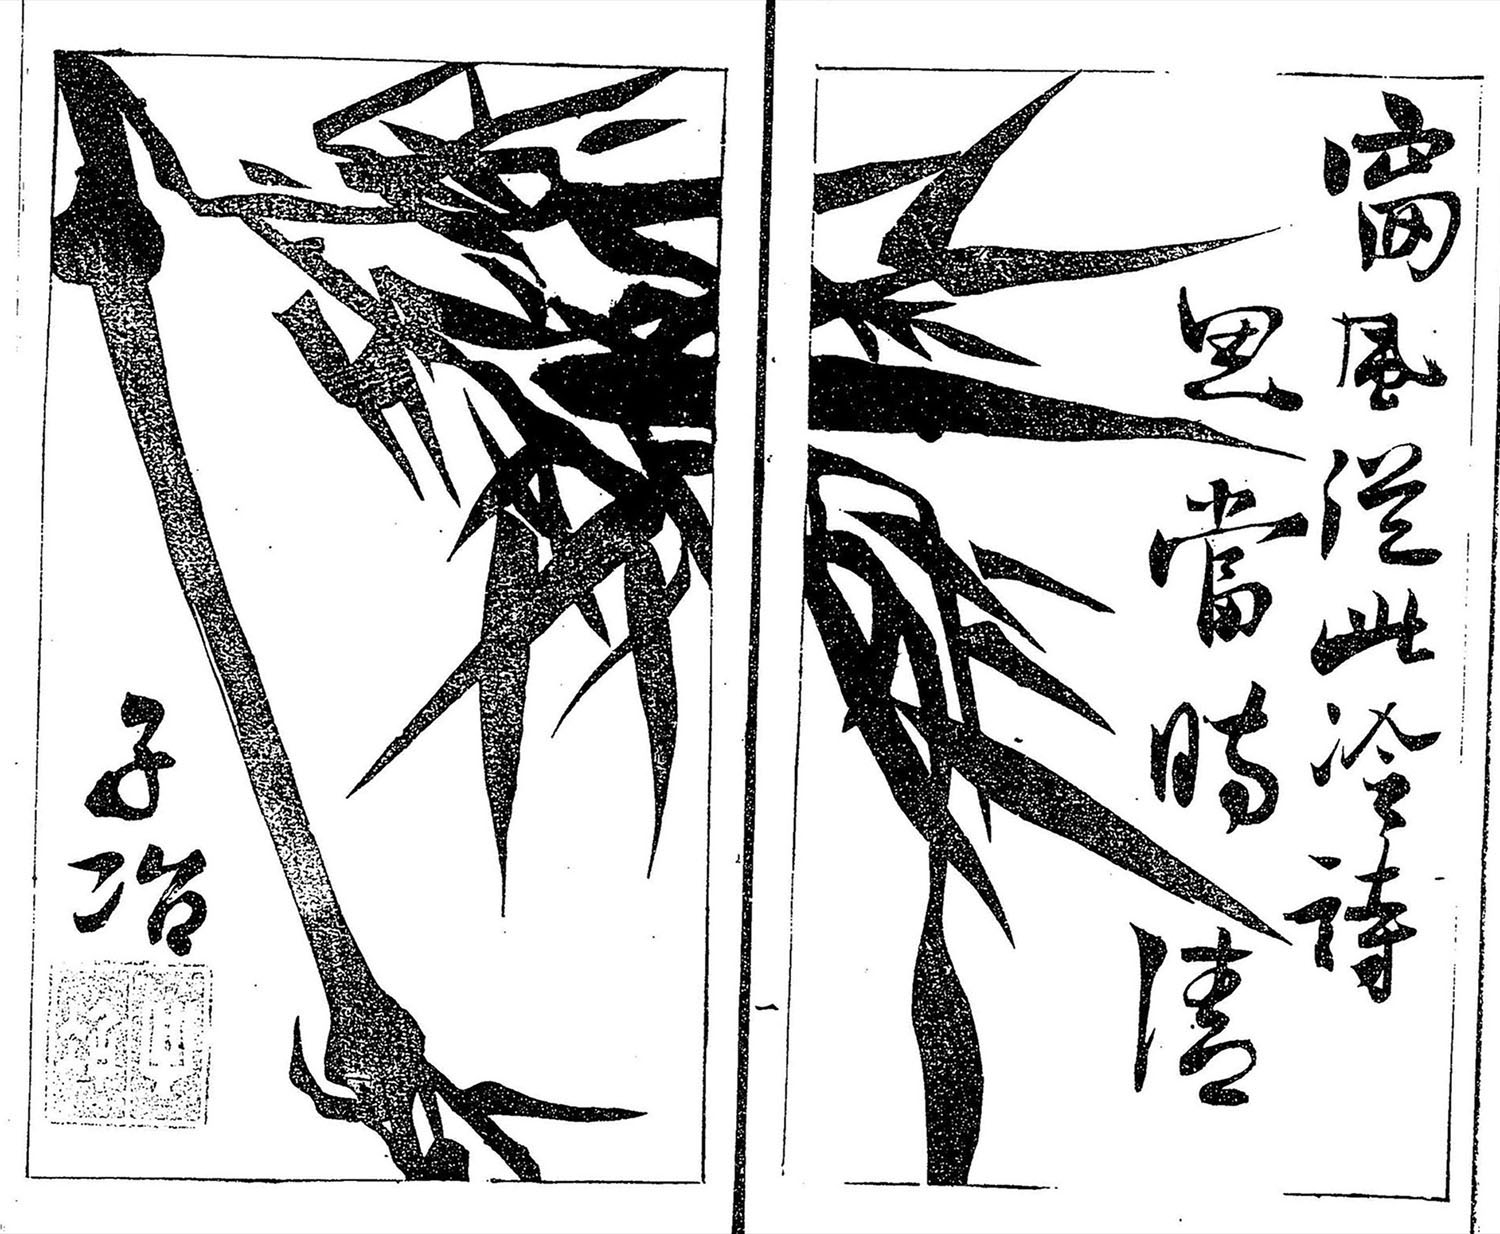 窗風從此冷詩
思當時清
一
子冶